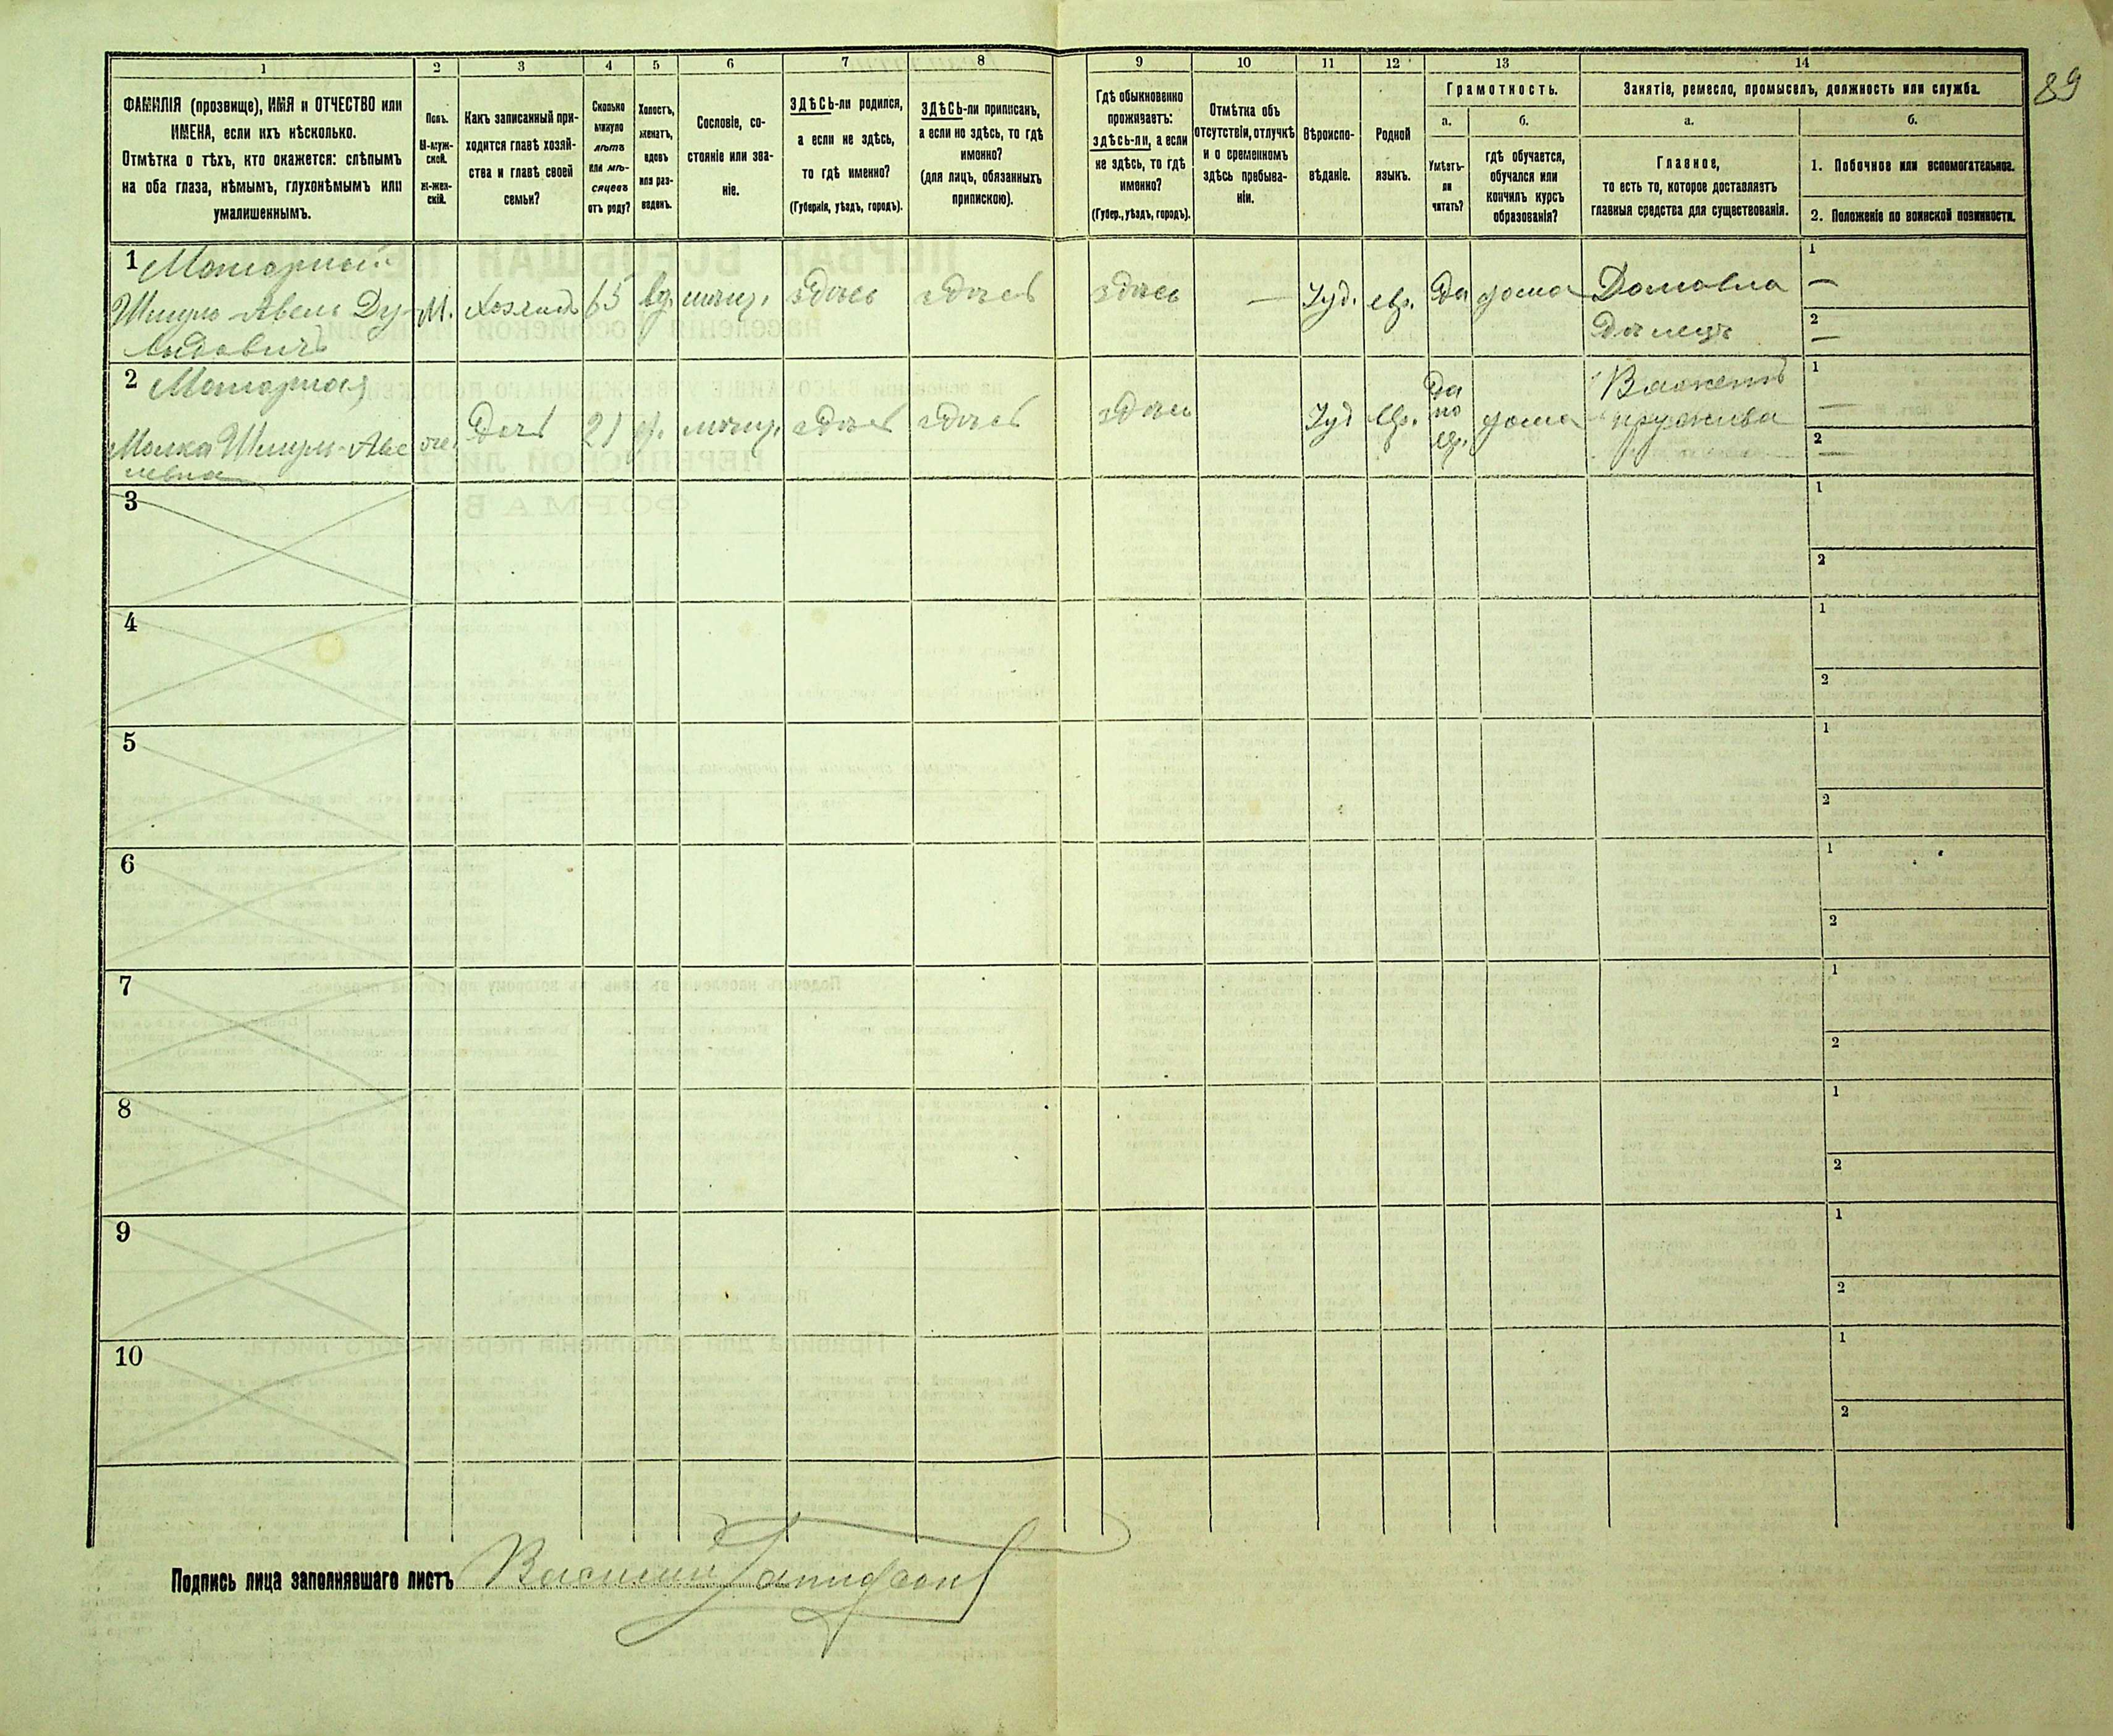 89
1 2 3 4 5 6 7 8 9 10 11 12 13 14
ФАМИЛІЯ (прозвище), ИМЯ и ОТЧЕСТВО или
ИМЕНА, если ихъ нѣсколько.
Отмѣтка о тѣхъ, кто окажется: слѣпымъ
на оба глаза, нѣмымъ, глухонѣмымъ или
умалишеннымъ.
Полъ.
М-муж-
ской.
ж-жен-
скій.
Какъ записанный при-
ходится главѣ хозяй-
ства и главѣ своей
семьи?
Сколько
минуло
лѣтъ
или мѣ-
сяцевъ
отъ роду?
Холостъ,
женатъ,
вдовъ
или раз-
веденъ.
Сословіе, со-
стояніе или зва-
ніе.
ЗДѢСЬ-ли родился,
а если не здѣсь,
то гдѣ именно?
(Губернія, уѣздъ, городъ).
ЗДѢСЬ-ли приписанъ,
а если не здѣсь, то гдѣ
именно?
(для лицъ, обязанныхъ
припискою).
Гдѣ обыкновенно
проживаетъ:
здѣсь-ли, а если
не здѣсь, то гдѣ
именно?
(Губер., уѣздъ, городъ).
Отмѣтка объ
отсутствіи, отлучкѣ
и о временномъ
здѣсь пребыва-
ніи.
Вѣроиспо-
вѣданіе.
Родной
языкъ.
Грамотность.
а.
Умѣетъ-
ли
читать?
б.
гдѣ обучается,
обучался или
кончилъ курсъ
образованія?
Занятіе, ремесло, промыселъ, должность или служба.
а.
Главное,
то есть то, которое доставляетъ
главныя средства для существованія.
б.
1. Побочное или вспомогательное.
2. Положеніе по воинской повинности.
1
Шмуль-Авель Ду-
видовичъ
М.
Хозяинъ
65
вд.
мѣщ.
здѣсь
здѣсь
здѣсь
—
Іуд.
евр.
да
дома
Домовла
дѣлецъ
1
—
2
—
2
Малка Шмуль-Аве
левна
жен.
Дочь
21
мѣщ.
здѣсь
здѣсь
здѣсь
Іуд
евр.
Да
по
евр.
дома
кружева
1
—
2
—
3
1
2
4
1
2
5
1
2
6
1
2
7
1
2
8
1
2
9
1
2
10
1
2
Подпись лица заполнявшаго листъ Василий